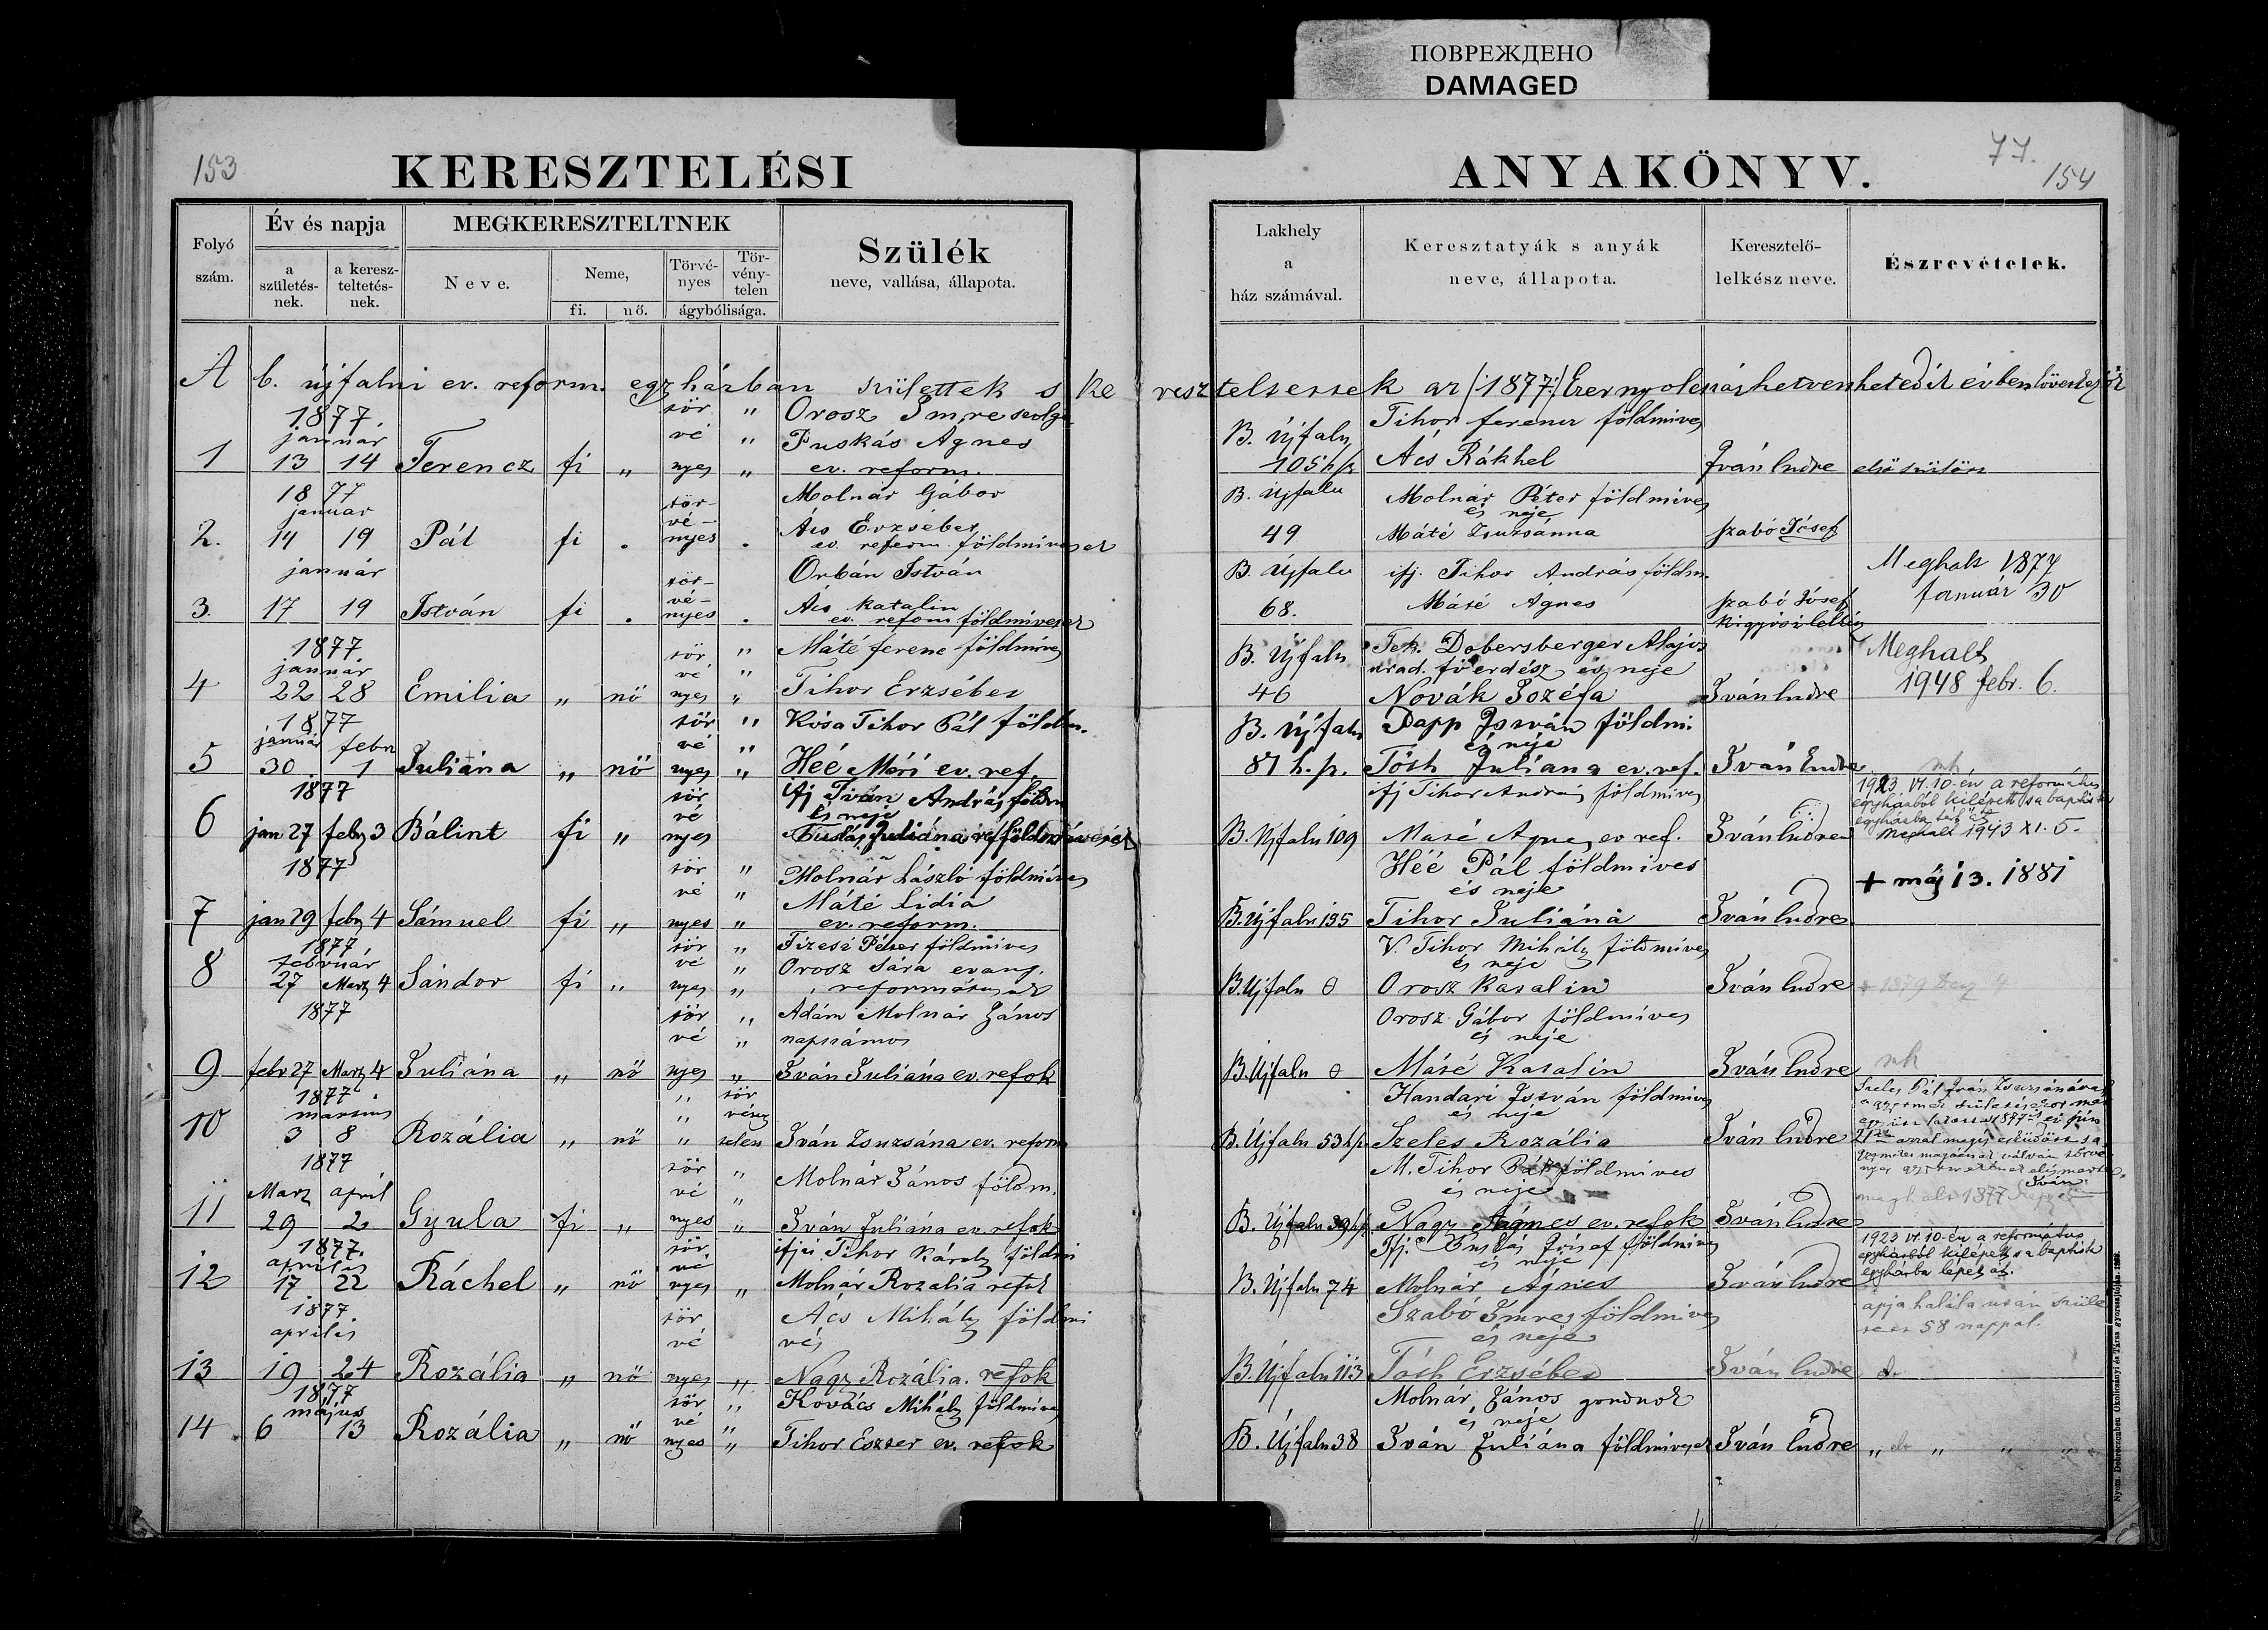 ПОВРЕЖДЕНО
DAMAGED
153
KERESZTELÉSI
Folyó szám.
Év és napja
a születés-nek.
a keresz-teltetés-nek.
MEGKERESZTELTNEK
Neve.
Neme,
fi.
nő.
Törvé-nyes
Tör-vény-telen
ágybólisága.
Szülék
neve, vallása, állapota.
77.
154
ANYAKÖNYV.
Lakhely
a
ház számával.
Keresztatyák s anyák
neve, állapota.
Keresztelő-
lelkész neve.
Észrevételek.
A b. újfalui ev. reform. egyházban születtek s ke
1877.
január
1 13 14 Ferencz fi „ tör vé nyes „ Orosz Imre szolga
Puskás Ágnes
ev. reform.
B. Újfalu
105 h/sz
Tihor ferencz földmives
Ács Rákhel
Iván Endre
1877
januar
2. 14 19 Pál fi . tör-vé-nyes . Molnár Gábor
Ács Erzsébet
ev. reform. földmivesek
B. Ujfalu
49
Molnár Péter földmives
és neje
Máté Zsuzsánna
Szabó József
január
3. 17 19 István fi . tör-vé-nyes . Orbán István
Ács Katalin
ev. reform földmivesek
B. Ujfalu
68.
ifj. Tihor András földm.
Máté Ágnes
Szabó József
Meghalt 1877
Január 30
1877
január
4 22 28 Emilia „ nő tör vé nyes „ Máté ferenc földmives
Tihor Erzsébet
B. Újfalu
46
Tek. Dobersberger Alajos
urad. főerdész és neje
Novák Jozéfa
Iván Endre
Meghalt
1948 febr. 6.
1877
január febr
5 30 1 Juliána „ nő tör vé nyes „ Kósa Tihor Pál földm.
Héé Mári ev. ref.
B. Újfalu
81 h. sz.
Papp István földmi.
és neje
Tóth Juliana ev. ref.
Iván Endre
1877
6 jan 27 febr 3 Bálint fi „ tör vé nyes ifj Iván András földm
és neje
B. Ujfalu 109
ifj Tihor András földmives
Máté Ágnes ev ref.
Iván Endre
nk
1923 VI. 10-én a református
egyházból kilépett s a baptista
egyházba tért át
Meghalt 1943 XI. 5.
1877
7 jan 29 febr 4 Sámuel fi „ tör vé nyes „ Molnár László földmives
Máté Lidia
ev. reform.
B. Újfalu 135
Héé Pál földmives
és neje
Tihor Juliána
Iván Endre
+ máj 13. 1881
1877
február
8 27 Marz 4 Sándor fi „ tör vé nyes „ Tizesi Péter földmives
Orosz Sára evang.
reformátusok
B. Ujfalu 0
V. Tihor Mihály földmives
és neje
Orosz Katalin
Iván Endre
1877
9 febr 27 Marz 4 Juliána „ nő tör vé nyes „ Adám Molnár János
napszámos
Iván Juliána ev. refok
B. Újfalu 0
Orosz Gábor földmives
és neje
Máté Katalin
Iván Endre
nk
1877
marsius
10 3 8 Rozália „ nő „ tör vény telen Iván Zsuzsána ev. reform
B. Újfalu 53 h/sz
Handari István földmives
és neje
Szeles Rozália
Iván Endre
Szeles Pál Iván Zsuzsánával
1877
Marz april
11 29 2 Gyula fi „ tör vé nyes „ Molnár János földm.
Iván Juliána ev. refok
B. Újfalu 39 h/sz
M. Tihor Pál földmives
és neje
Nagy Ágnes ev. refok
Iván Endre
1877.
aprilis
12 17 22 Ráchel „ nő tör vé nyes „ Tihor Károly földmi
Molnár Rozalia refok
B. Újfalu 74
Ifj. Puskás József földmives
és neje
Molnár Ágnes
Iván Endre
1923 VI. 10-én a református
egyházból kilépett s a baptista
egyházba lépett át.
1877
aprilis
13 19 24 Rozália „ nő tör vé nyes „ Ács Mihály földmi
ves
Nagy Rozália. refok
B. Újfalu 113
Szabó Imre földmives
és neje
Tóth Erzsébet
Iván Endre
apja halála után szüle
tett 58 nappal.
1877
május
14 6 13 Rozália „ nő tör vé nyes „ Kovács Mihály földmives
Tihor Eszter ev. refok
B. Újfalu 38
Molnár János gondnok
és neje
Iván Juliána földmivesek
Iván Endre